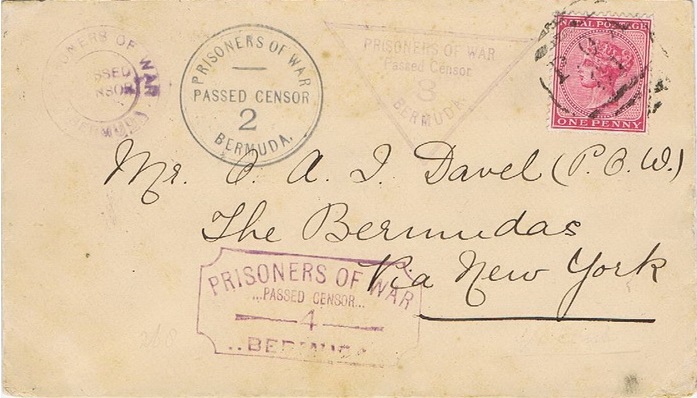 PRISONERS OF WAR
PASSED
BERMUDA
PRISONERS OF WAR
PASSED CENSOR
2
BERMUDA.
PRISONERS OF WAR
Passed Censor
3
BERMUDA.
NATAL POSTAGE
ONE PENNY
Mr. C. A. J. Davel (P.O.W.)
The Bermudas
Via New York
PRISONERS OF WAR
...PASSED CENSOR...
4
..BERMUDA..